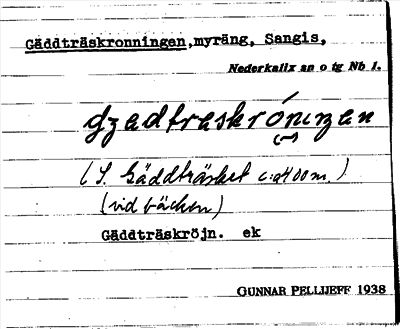 Gäddträskronningen, myräng, Sangis,
Nederkalix sn o tg Nb 1.
(S. Gäddträsket c:a 400 m.)
(vid bäcken)
Gäddträskröjn. ek
GUNNAR PELLIJEFF 1938